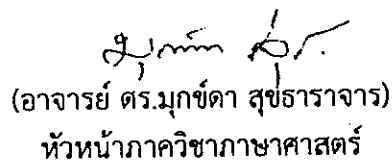 (อาจารย์ ดร.มุกข์ดา สุขธาราจาร)
หัวหน้าภาควิชาภาษาศาสตร์